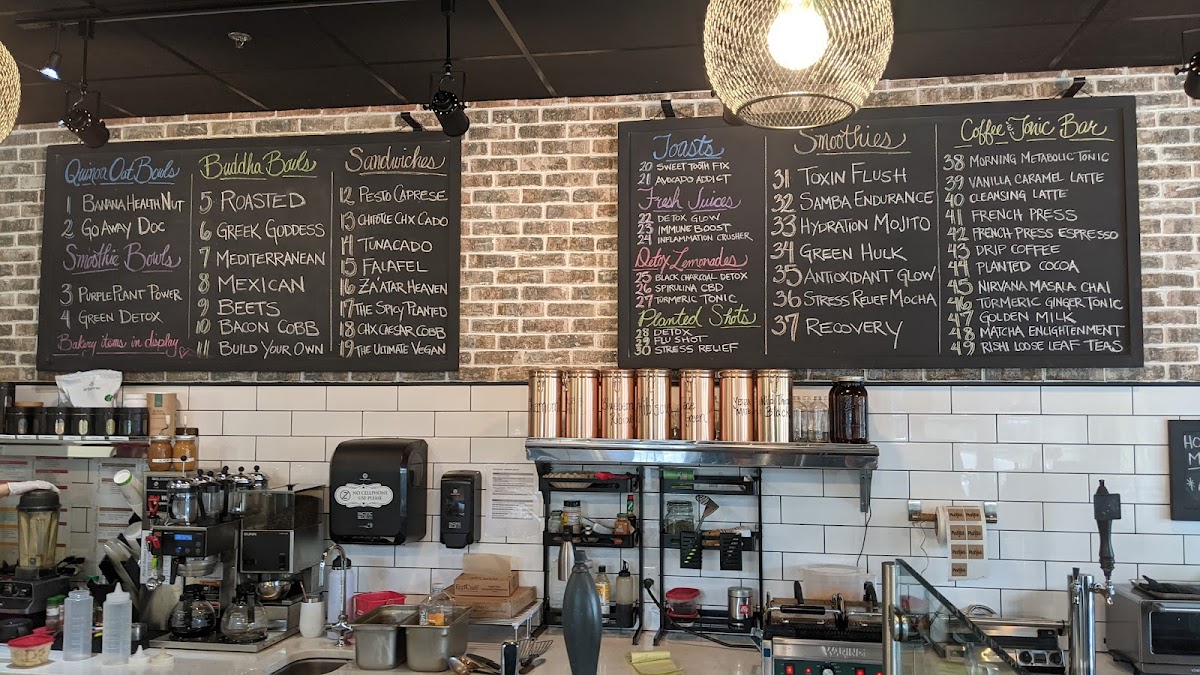 Quinoa Oat Bowls
1 Banana Health Nut
2 Go Away Doc
Smoothie Bowls
3 Purple Plant Power
4 Green Detox
Bakery items in display
Buddha Bowls
5 Roasted
6 Greek Goddess
7 Mediterranean
8 Mexican
9 Beets
10 Bacon Cobb
11 Build Your Own
Sandwiches
12 Pesto Caprese
13 Chipotle Chx Cado
14 Tunacado
15 Falafel
16 Za'atar Heaven
17 The Spicy Planted
18 Chx Caesar Cobb
19 The Ultimate Vegan
Toasts
20 Sweet Tooth Fix
21 Avocado Addict
Fresh Juices
22 Detox Glow
23 Immune Boost
24 Inflammation Crusher
Detox Lemonades
25 Black Charcoal Detox
26 Spirulina CBD
27 Turmeric Tonic
Planted Shots
28 Detox
29 Flu Shot
30 Stress Relief
Smoothies
31 Toxin Flush
32 Samba Endurance
33 Hydration Mojito
34 Green Hulk
35 Antioxidant Glow
36 Stress Relief Mocha
37 Recovery
Coffee & Tonic Bar
38 Morning Metabolic Tonic
39 Vanilla Caramel Latte
40 Cleansing Latte
41 French Press
42 French Press Espresso
43 Drip Coffee
44 Planted Cocoa
45 Nirvana Masala Chai
46 Turmeric Ginger Tonic
47 Golden Milk
48 Matcha Enlightenment
49 Rishi Loose Leaf Teas
NO CELLPHONE
USE PLEASE
BUNN
WARING